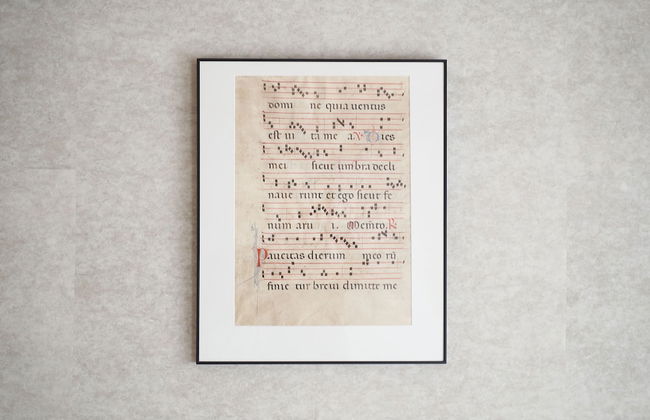 domi ne quia uentus
est ui ta me a. V. Dies
mei sicut umbra decli
naue runt et ego sicut fe
num aru i. Memto. R
Paucitas dierum meo rū
finie tur breui dimitte me